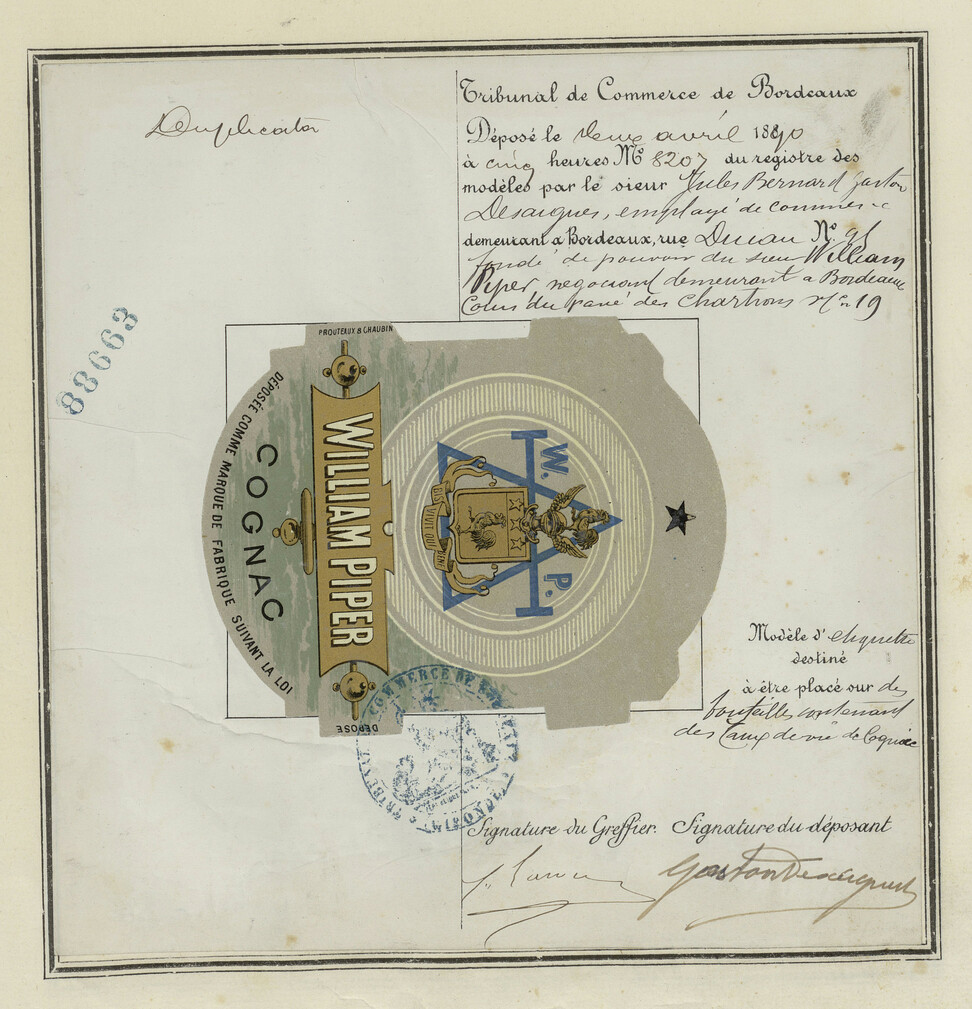 Duplicata
Tribunal de Commerce de Bordeaux
Déposé le deux avril 1890
à cinq heures No 8207 du registre des
modèles par le sieur Jules Bernard Gaston
Desaigues, employé de commerce
demeurant a Bordeaux, rue No 91
fondé de pouvoir du sieur William
Piper, negociant demeurant a Bordeaux
Cours du pavé des Chartrons No 19
88663
PROUTEAUX & CHAUBIN
DÉPOSÉE COMME MARQUE DE FABRIQUE SUIVANT LA LOI
COGNAC
WILLIAM PIPER
DÉPOSÉ
W.
P.
BIS VIVIT QUI BENE
Modèle d'etiquette
destiné
à être placé sur des
bouteilles contenant
des Eaux de vie de Cognac
TRIBUNAL DE COMMERCE DE BORDEAUX
Signature du Greffier. Signature du déposant